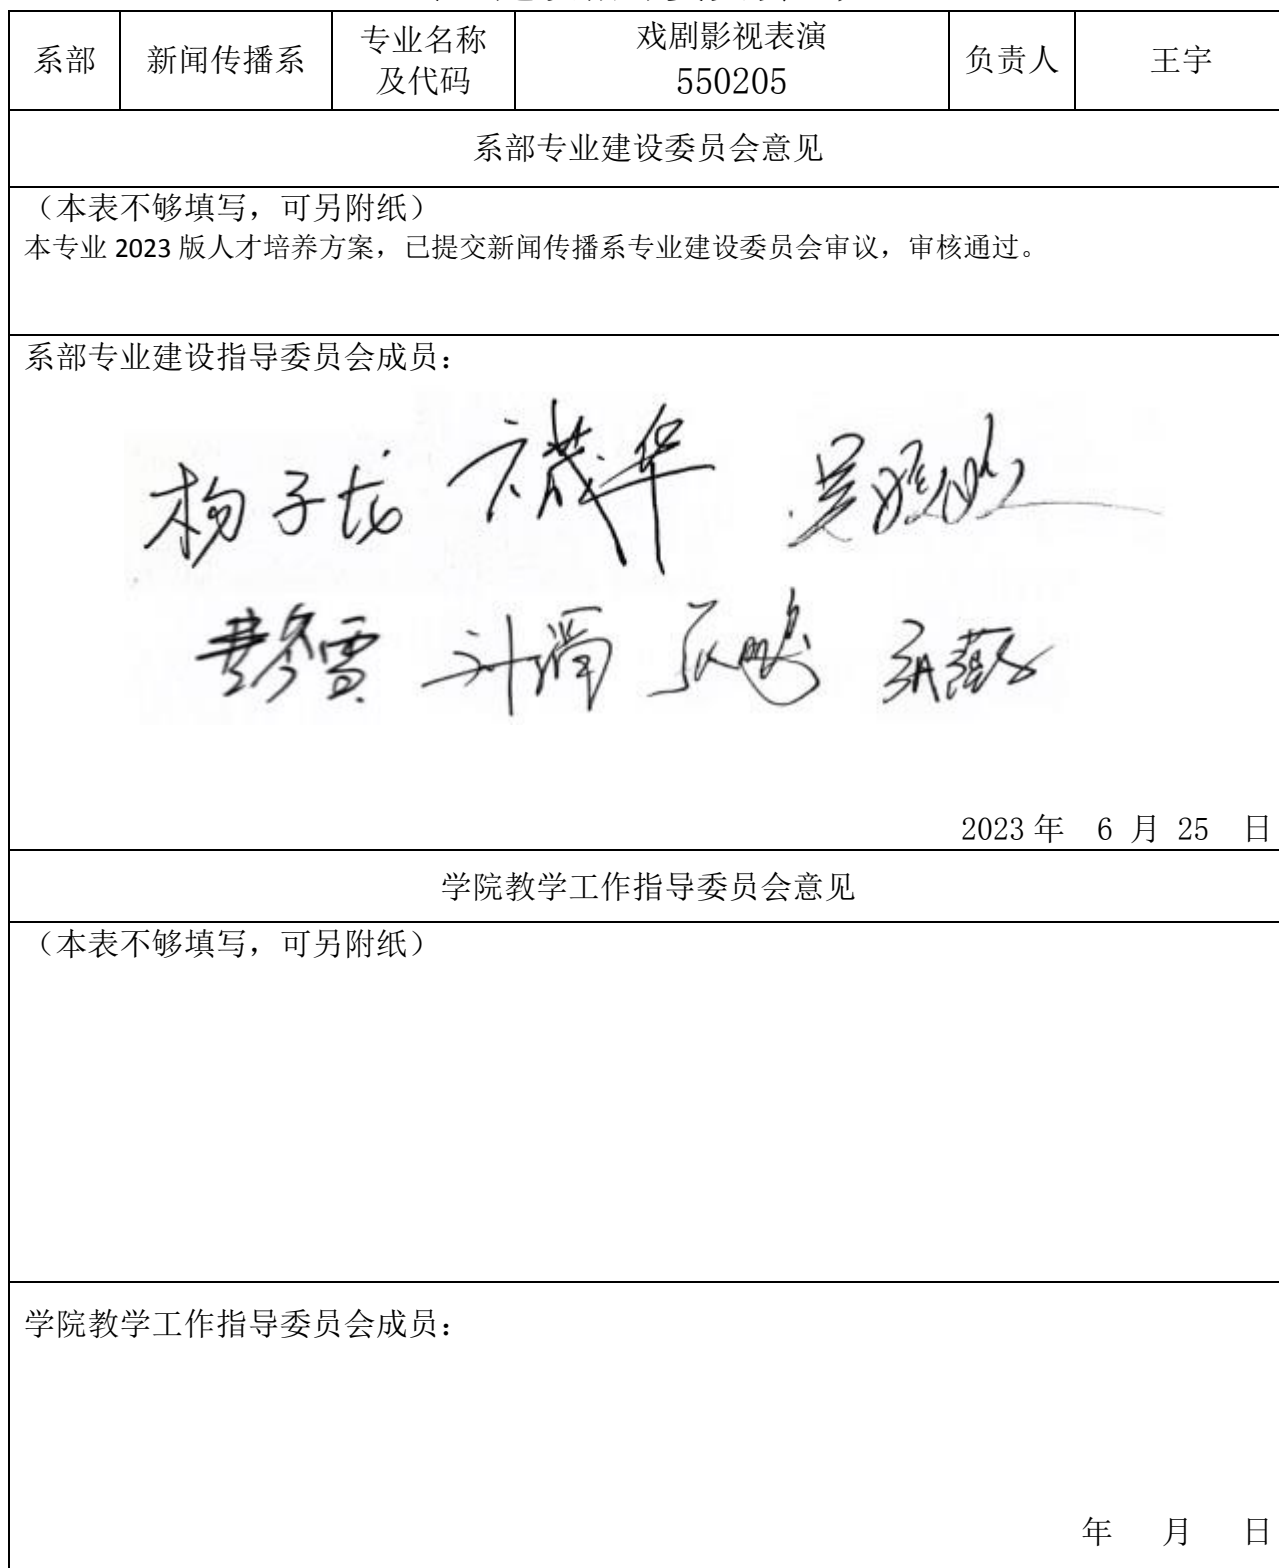 系部 新闻传播系 专业名称及代码 戏剧影视表演 550205 负责人 王宇
系部专业建设委员会意见
（本表不够填写，可另附纸）
本专业 2023 版人才培养方案，已提交新闻传播系专业建设委员会审议，审核通过。
系部专业建设指导委员会成员：
杨子龙
2023 年 6 月 25 日
学院教学工作指导委员会意见
（本表不够填写，可另附纸）
学院教学工作指导委员会成员：
年 月 日